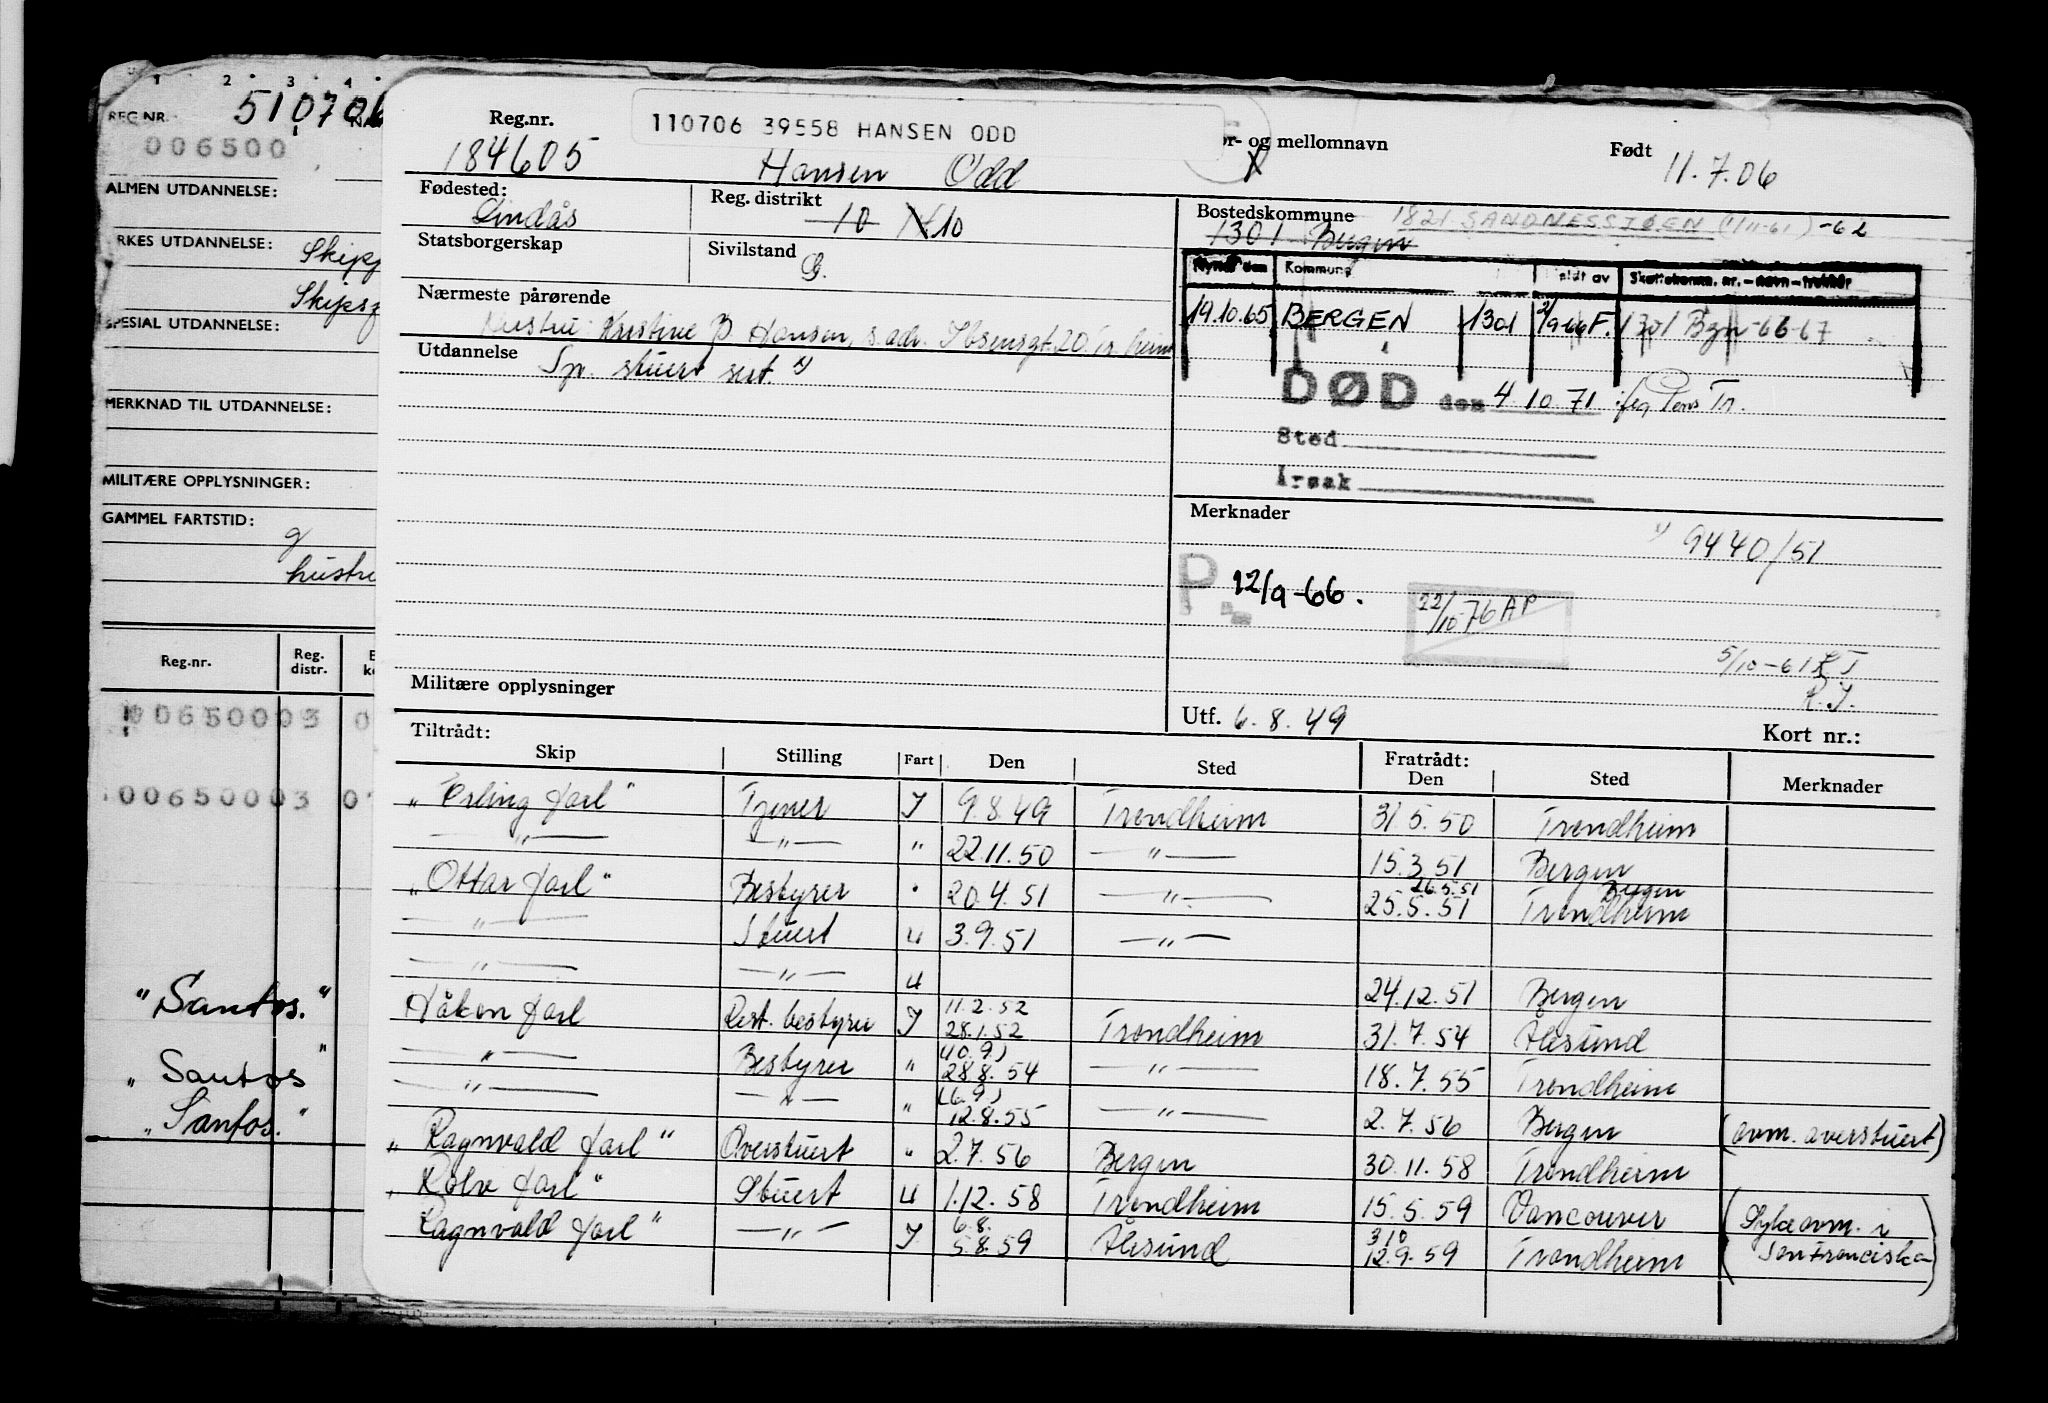 1 2 3 4
REG.NR. 510706
006500
ALMEN UTDANNELSE:
YRKES UTDANNELSE:
SPESIAL UTDANNELSE:
MERKNAD TIL UTDANNELSE:
MILITÆRE OPPLYSNINGER:
GAMMEL FARTSTID:
g
Reg.nr. Reg. distr.
00650003 0
00650003
"Santos."
"Santos"
"Santos."
Reg.nr. 110706 39558 HANSEN ODD or- og mellomnavn Født
184605 Hansen Odd X 11.7.06
Fødested: Reg. distrikt Bostedskommune 1821 SANDNESSJØEN (1/11-61) -62
Lindås 10 10 1301 Bergen
Statsborgerskap Sivilstand
G.
Kommune Skattekomm. nr. - navn -
Nærmeste pårørende
Hustru: Kristine B Hansen, s. adr. Ibsensgt. 20. Tr.heim
19.10.65 BERGEN 1301 2/9-66 F. 1301 Bgn -66-67
Utdannelse Spr. stuert sert. x)
DØD den 4.10.71
Sted
Årsak
Merknader
x) 9440/51
P. 12/9-66. 22/10-76 AP
5/10-61
R.J.
Militære opplysninger
Utf. 6.8.49 Kort nr.:
Tiltrådt: Fratrådt:
Skip Stilling Fart Den Sted Den Sted Merknader
"Erling Jarl" Tjener J 9.8.49 Trondheim 31.5.50 Trondheim
—"— —"— " 22.11.50 —"— 15.3.51 Bergen
26.5.51 Bergen
"Ottar Jarl" Bestyrer " 20.4.51 —"— 25.5.51 Trondheim
—"— Stuert U 3.9.51 —"—
—"— —"— U 24.12.51 Bergen
11.2.52
Håkon Jarl Rest. bestyrer J 28.1.52 Trondheim 31.7.54 Ålesund
(10.9.)
—"— Bestyrer " 28.8.54 —"— 18.7.55 Trondheim
(6.9.)
—"— —"— " 12.8.55 —"— 2.7.56 Bergen (avm. overstuert)
"Ragnvald Jarl" Overstuert " 2.7.56 Bergen 30.11.58 Trondheim
"Rolv Jarl" Stuert U 1.12.58 Trondheim 15.5.59 Vancouver (Sykeavm. i
6.8. 3.10
Ragnvald Jarl" —"— J 5.8.59 Ålesund 12.9.59 Trondheim San Francisko)